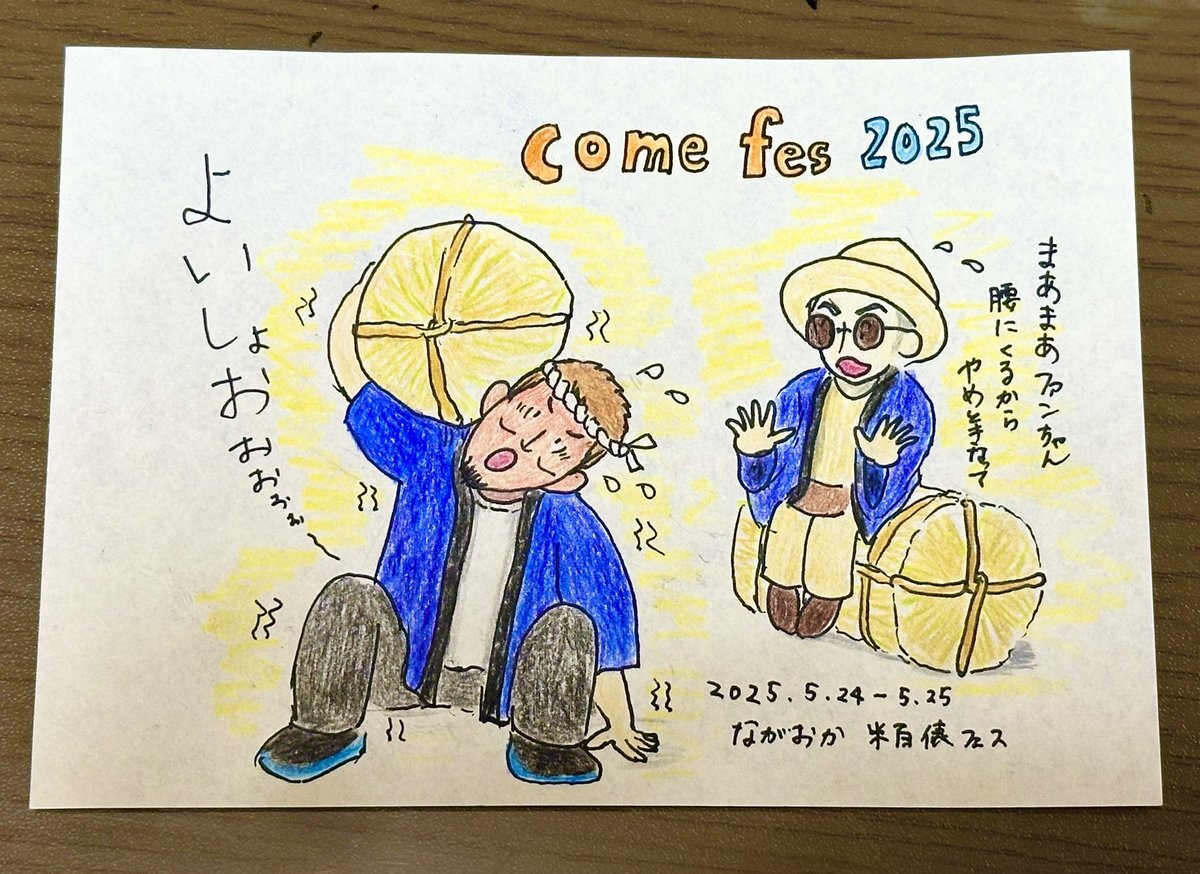 come fes 2025
よいしょおおおおぉ
まあまあファンちゃん
腰にくるから
やめ手なって
2025.5.24-5.25
ながおか 米百俵フェス